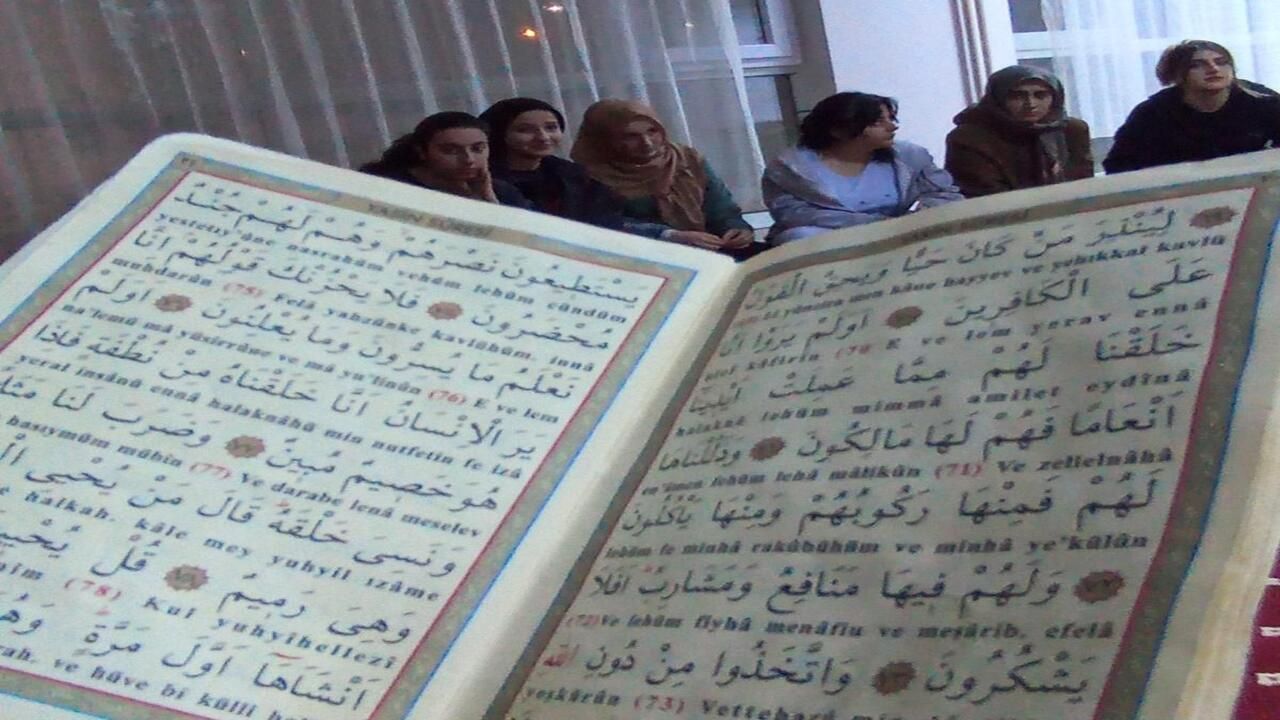 YASİN SÛRESİ
لِيُنْذِرَ مَنْ كَانَ حَيًّا وَيَحِقَّ الْقَوْلُ
Li yünzira men kâne hayyev ve yehıkkal kavlü
عَلَى الْكَافِرِينَ اَوَلَمْ يَرَوْا اَنَّا
alel kâfirîn (70) E ve lem yerav ennâ
خَلَقْنَا لَهُمْ مِمَّا عَمِلَتْ اَيْدِينَا
halaknâ lehüm mimmâ amilet eydînâ
اَنْعَامًا فَهُمْ لَهَا مَالِكُونَ وَذَلَّلْنَاهَا
en'âmen fehüm lehâ mâlikûn (71) Ve zellelnâhâ
لَهُمْ فَمِنْهَا رَكُوبُهُمْ وَمِنْهَا يَأْكُلُونَ
lehüm fe minhâ rakûbühüm ve minhâ ye'külûn
وَلَهُمْ فِيهَا مَنَافِعُ وَمَشَارِبُ اَفَلَا
(72) Ve lehüm fîyhâ menâfiu ve meşârib. efelâ
يَشْكُرُونَ وَاتَّخَذُوا مِنْ دُونِ اللّٰهِ
yeşkürûn (73) Vettehazû min
YASİN SÛRESİ
يَسْتَطِيعُونَ نَصْرَهُمْ وَهُمْ لَهُمْ جُنْدٌ
yestetıy'ûne nasrahüm vehüm lehüm cündüm
مُحْضَرُونَ فَلَا يَحْزُنْكَ قَوْلُهُمْ اِنَّا
muhdarûn (75) Felâ yahzünke kavlühüm. innâ
نَعْلَمُ مَا يُسِرُّونَ وَمَا يُعْلِنُونَ اَوَلَمْ
na'lemü mâ yüsirrûne ve mâ yu'linûn (76) E ve lem
يَرَ الْاِنْسَانُ اَنَّا خَلَقْنَاهُ مِنْ نُطْفَةٍ فَاِذَا
yeral insânü ennâ halaknâhü min nutfetin fe izâ
هُوَ خَصِيمٌ مُبِينٌ وَضَرَبَ لَنَا مَثَلًا
hasıymüm mübîn (77) Ve darabe lenâ meselev
وَنَسِىَ خَلْقَهُ قَالَ مَنْ يُحْيِى
halkah. kâle mey yuhyil ızâme
وَهِىَ رَمِيمٌ قُلْ
(78) Kul yuhyîhellezî
اَنْشَاَهَا اَوَّلَ مَرَّةٍ
ve hüve bi külli